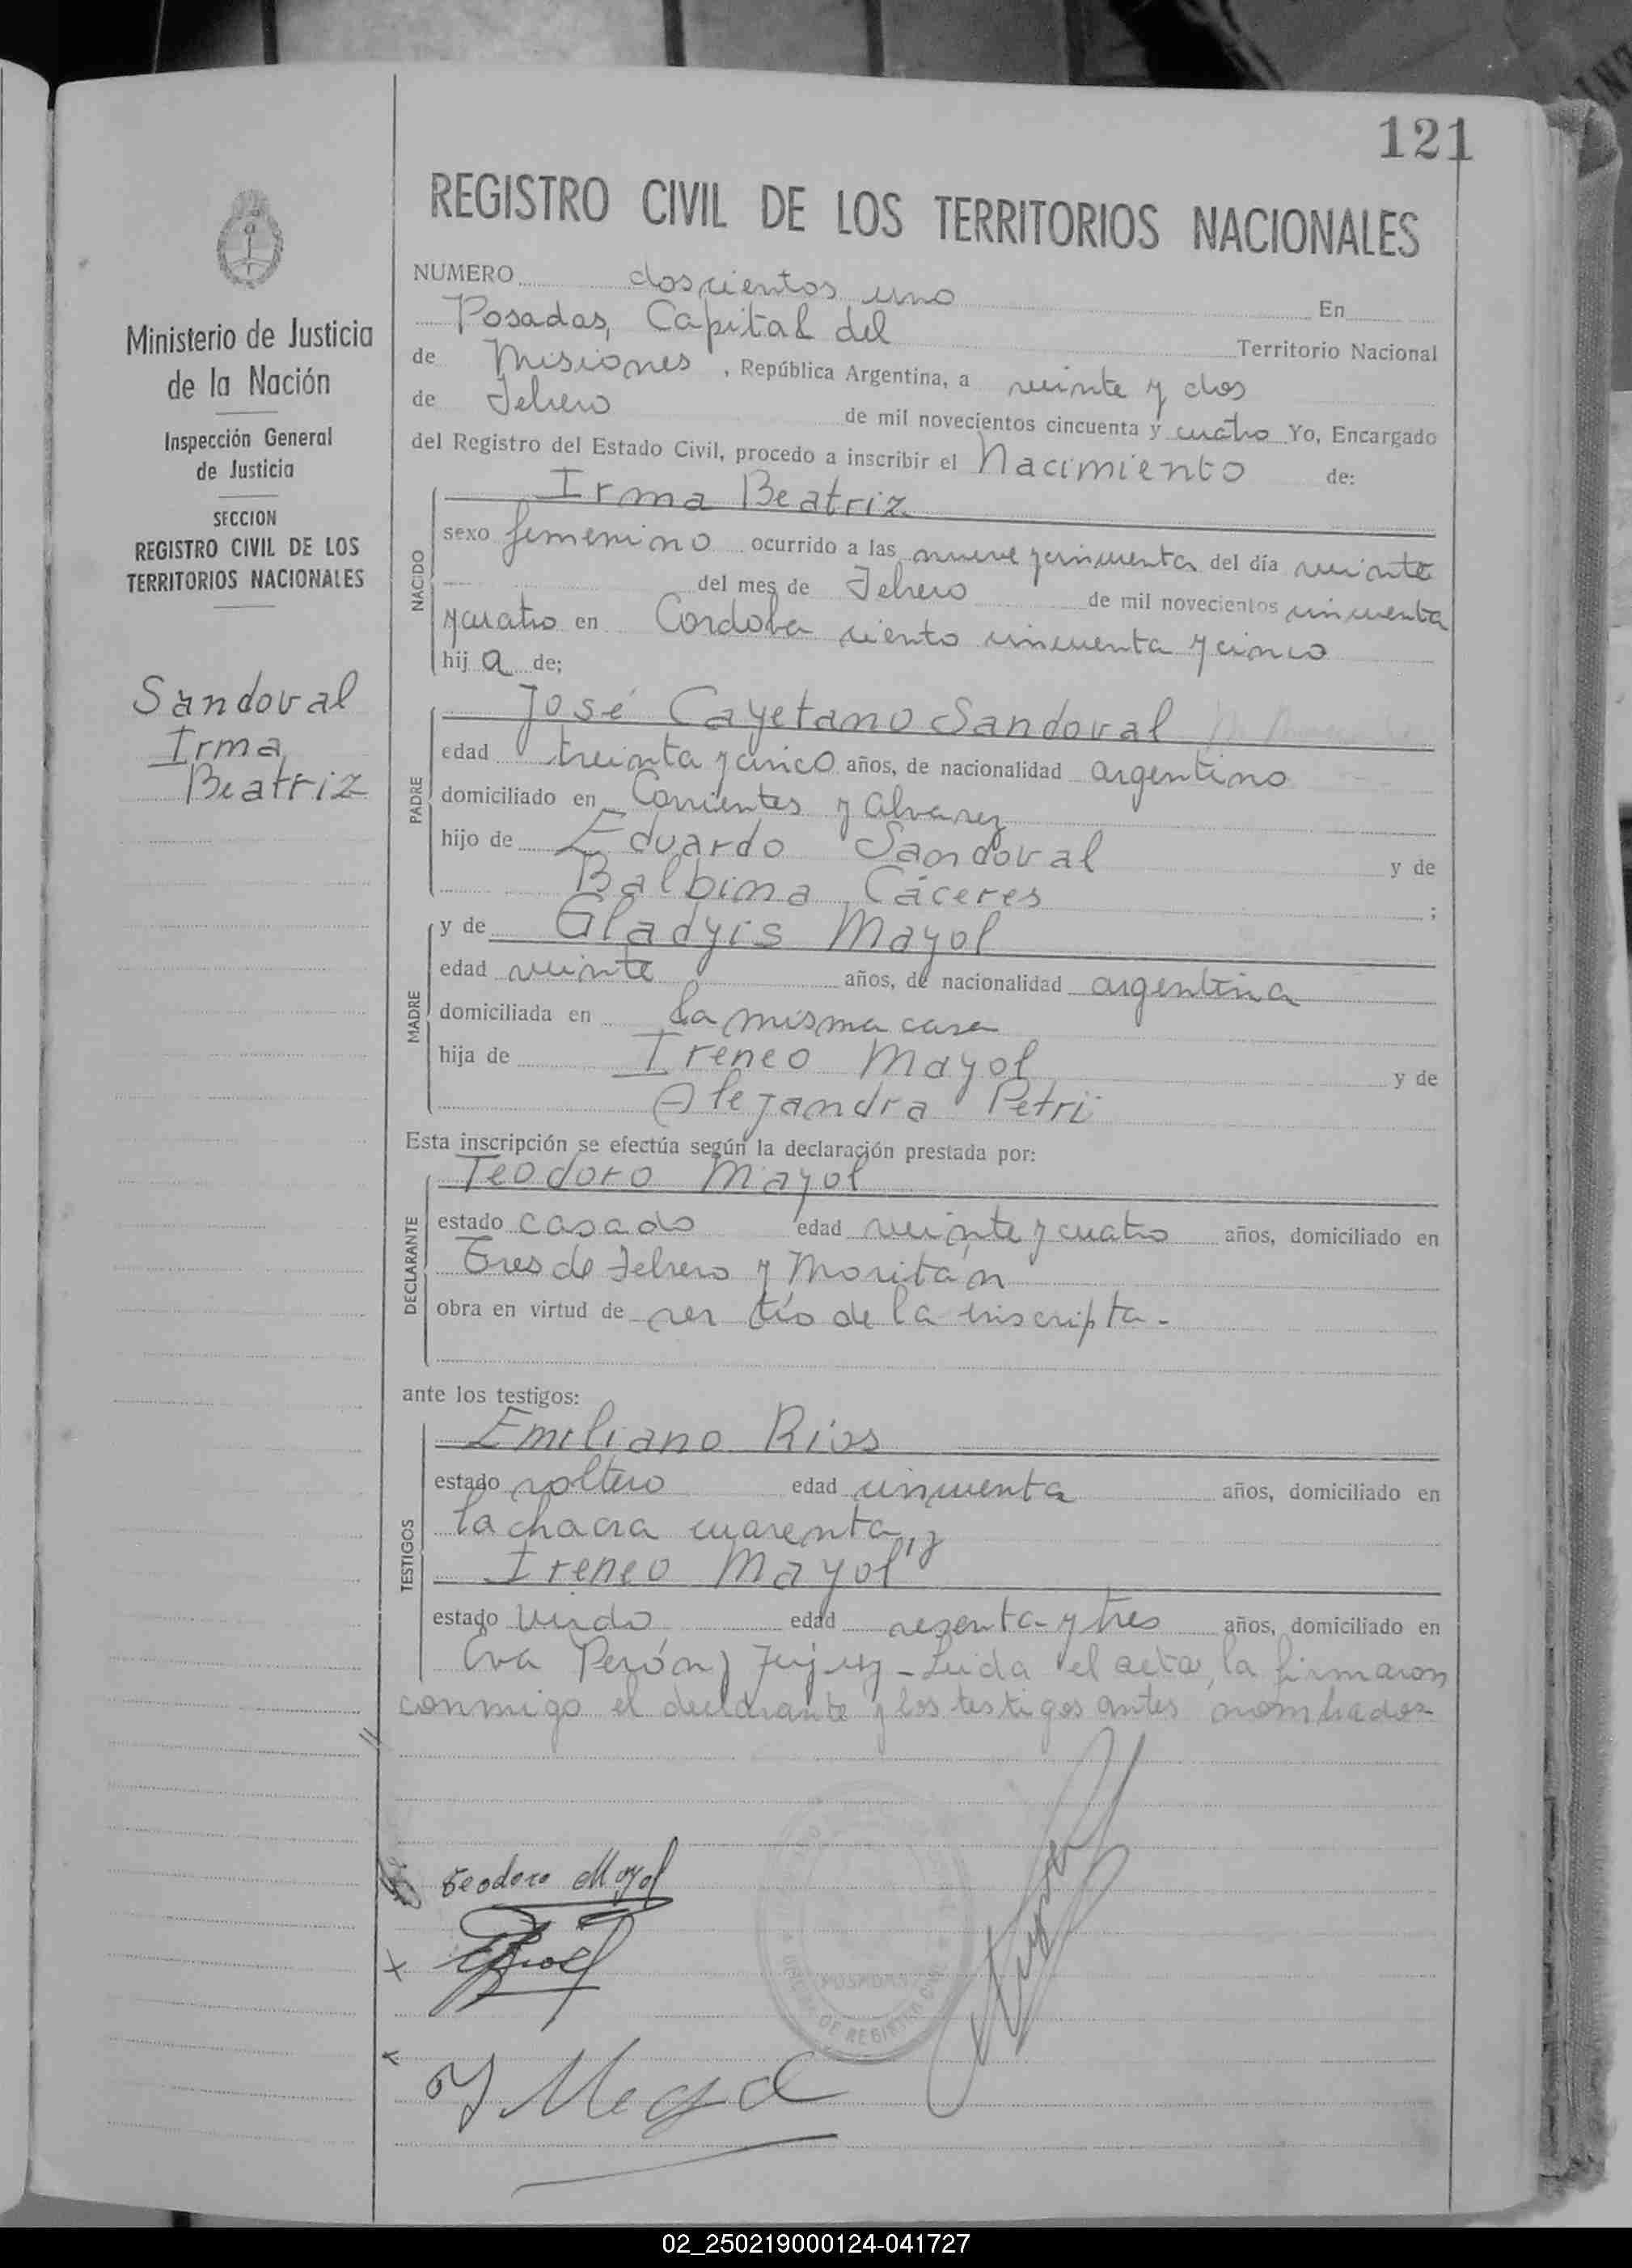 121
REGISTRO CIVIL DE LOS TERRITORIOS NACIONALES
Ministerio de Justicia
de la Nación
Inspección General
de Justicia
SECCION
REGISTRO CIVIL DE LOS
TERRITORIOS NACIONALES
Sandoval
Irma
Beatriz
NUMERO doscientos uno En
Posadas, Capital del Territorio Nacional
de Misiones, República Argentina, a veinte y dos
de Febrero de mil novecientos cincuenta y cuatro Yo, Encargado
del Registro del Estado Civil, procedo a inscribir el Nacimiento de:
NACIDO
Irma Beatriz
sexo femenino ocurrido a las nueve y cincuenta del día veinte
del mes de Febrero de mil novecientos cincuenta
y cuatro en Cordoba ciento cincuenta y cinco
hij a de;
PADRE
José Cayetano Sandoval
edad treinta y cinco años, de nacionalidad argentino
domiciliado en Corrientes y Alvarez
hijo de Eduardo Sandoval y de
Balbina Cáceres ;
MADRE
y de Gladyis Mayol
edad veinte años, de nacionalidad argentina
domiciliada en la misma casa
hija de Ireneo Mayol y de
Alejandra Petri
Esta inscripción se efectúa según la declaración prestada por:
DECLARANTE
Teodoro Mayol
estado casado edad veinte y cuatro años, domiciliado en
Tres de Febrero y Moritán
obra en virtud de ser tío de la inscripta.
ante los testigos:
TESTIGOS
Emiliano Rios
estado soltero edad cincuenta años, domiciliado en
la chacra cuarenta, y
Ireneo Mayol
estado viudo, edad sesenta y tres años, domiciliado en
Eva Perón y Jujuy - Leida el acta, la firmaron
conmigo el declarante y los testigos antes nombrados
Teodoro Mayol
POSADAS
DE REGISTRO CIVIL
I Mayol
02_250219000124-041727